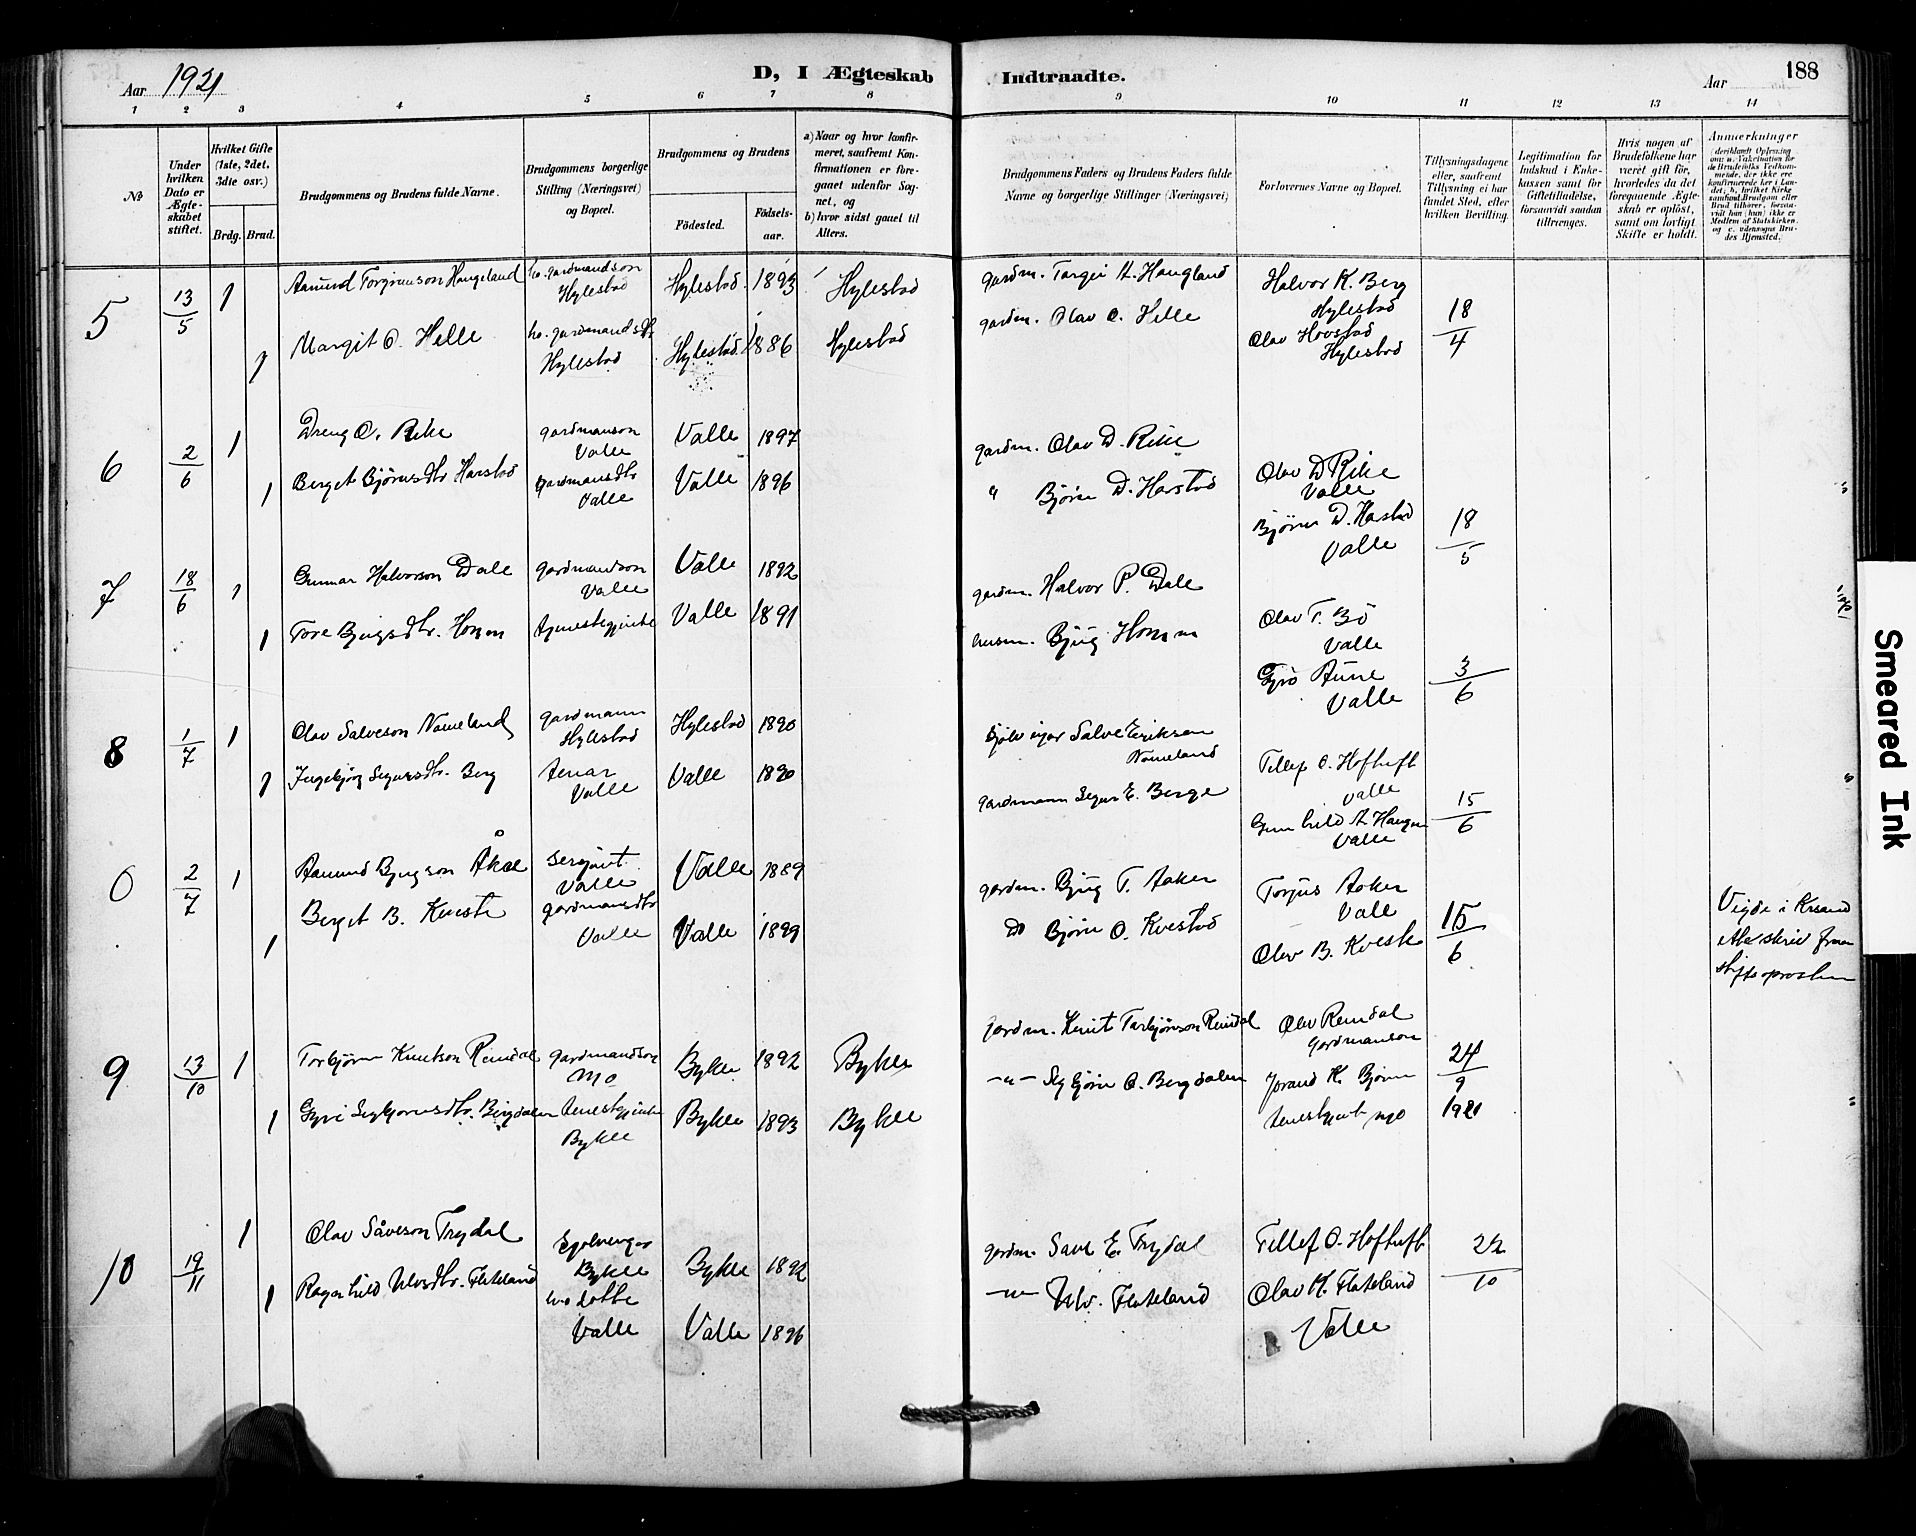 Aar 1921
D, I Ægteskab Indtraadte.
Aar
188
1 2 3 4 5 6 7 8 9 10 11 12 13 14
No
Under hvilken Dato er Ægteskabet stiftet.
Hvilket Gifte (1ste, 2det, 3die osv.)
Brdg. Brud.
Brudgommens og Brudens fulde Navne.
Brudgommens borgerlige Stilling (Næringsvei) og Bopæl.
Brudgommens og Brudens
Fødested.
Fødselsaar.
a) Naar og hvor konfirmeret, saafremt Konfirmationen er foregaaet udenfor Sognet, og
b) hvor sidst gaaet til Alters.
Brudgommens Faders og Brudens Faders fulde Navne og borgerlige Stillinger (Næringsvei)
Forlovernes Navne og Bopæl.
Tillysningsdagene eller, saafremt Tillysning ei har fundet Sted, efter hvilken Bevilling.
Legitimation for Indskud i Enkekassen samt for Giftetilladelse, forsaavidt saadan tiltrænges.
Hvis nogen af Brudefolkene har været gift før, hvorledes da det foregaaende Ægteskab er opløst, samt om lovligt Skifte er holdt.
Anmærkninger
5 13/5 1 Aamund Torgeirson Haugeland gardmandson Hylestad Hylestad 1893 Hylestad gardm. Targei A. Haugland Halvor K. Berg Hylestad
1 Margit O. Helle gardmandsdtr Hylestad Hylestad 1886 Hylestad gardm. Olav O. Helle Olav Hovstad Hylestad 18/4
6 2/6 1 Dreng O. Rike gardmanson Valle Valle 1897 gardm. Olav D. Rike Olav D Rike Valle
1 Berget Bjørnsdtr Harstad gardmansdtr Valle Valle 1896 " Bjørn D. Harstad Bjørn D. Harstad Valle 18/5
7 18/6 1 Gunnar Halvorson Dale gardmandson Valle Valle 1892 gardm. Halvor P. Dale Olav T. Bö Valle
1 Tore Bjugsdtr. Homm tjenestegjente Valle 1891 husm. Bjug Homm Gyro Aune Valle 3/6
8 1/7 1 Olav Salveson Nomeland gardmann Hylestad Hylestad 1890 Salve Eriksen Nomeland Tellef O. Hoftuft Valle
1 Ingebjørg Sigursdtr. Berg Valle Valle 1890 gardmann Sigur E. Berge Gunhild A Haugen Valle 15/6
0 2/7 1 Aamund Bjugson Åker sersjant Valle Valle 1889 gardm. Bjug T. Aaker Torjus Aaker Valle
1 Berget B. Kveste gardmansdtr Valle Valle 1899 do Bjørn O. Kvestad Olav B. Kveste 15/6
Vigde i Krsand
skriv fraa
stiftsprosten
9 23/10 1 Torbjørn Knutson Reindal gardmandson Mo Bykle 1892 Bykle gardm. Knut Tarbjørnson Reindal Olav Reindal gardmanson
1 Gyri Sigbjørnsdtr. Bergdalen tenestgjente Bykle Bykle 1893 Bykle -"- Sigbjørn O. Bergdalen Jorand K. Bjørn tenestgjente Mo 24/9 1921
10 19/11 1 Olav Såveson Trydal Sjølveigar Bykle Bykle 1892 gardm. Save E. Trydal Tellef O. Hoftuft
1 Ragnhild Ulvsdtr. Flateland Valle Valle 1896 -"- Ulv. Flateland Olav K. Flateland Valle 22/10
Smeared Ink